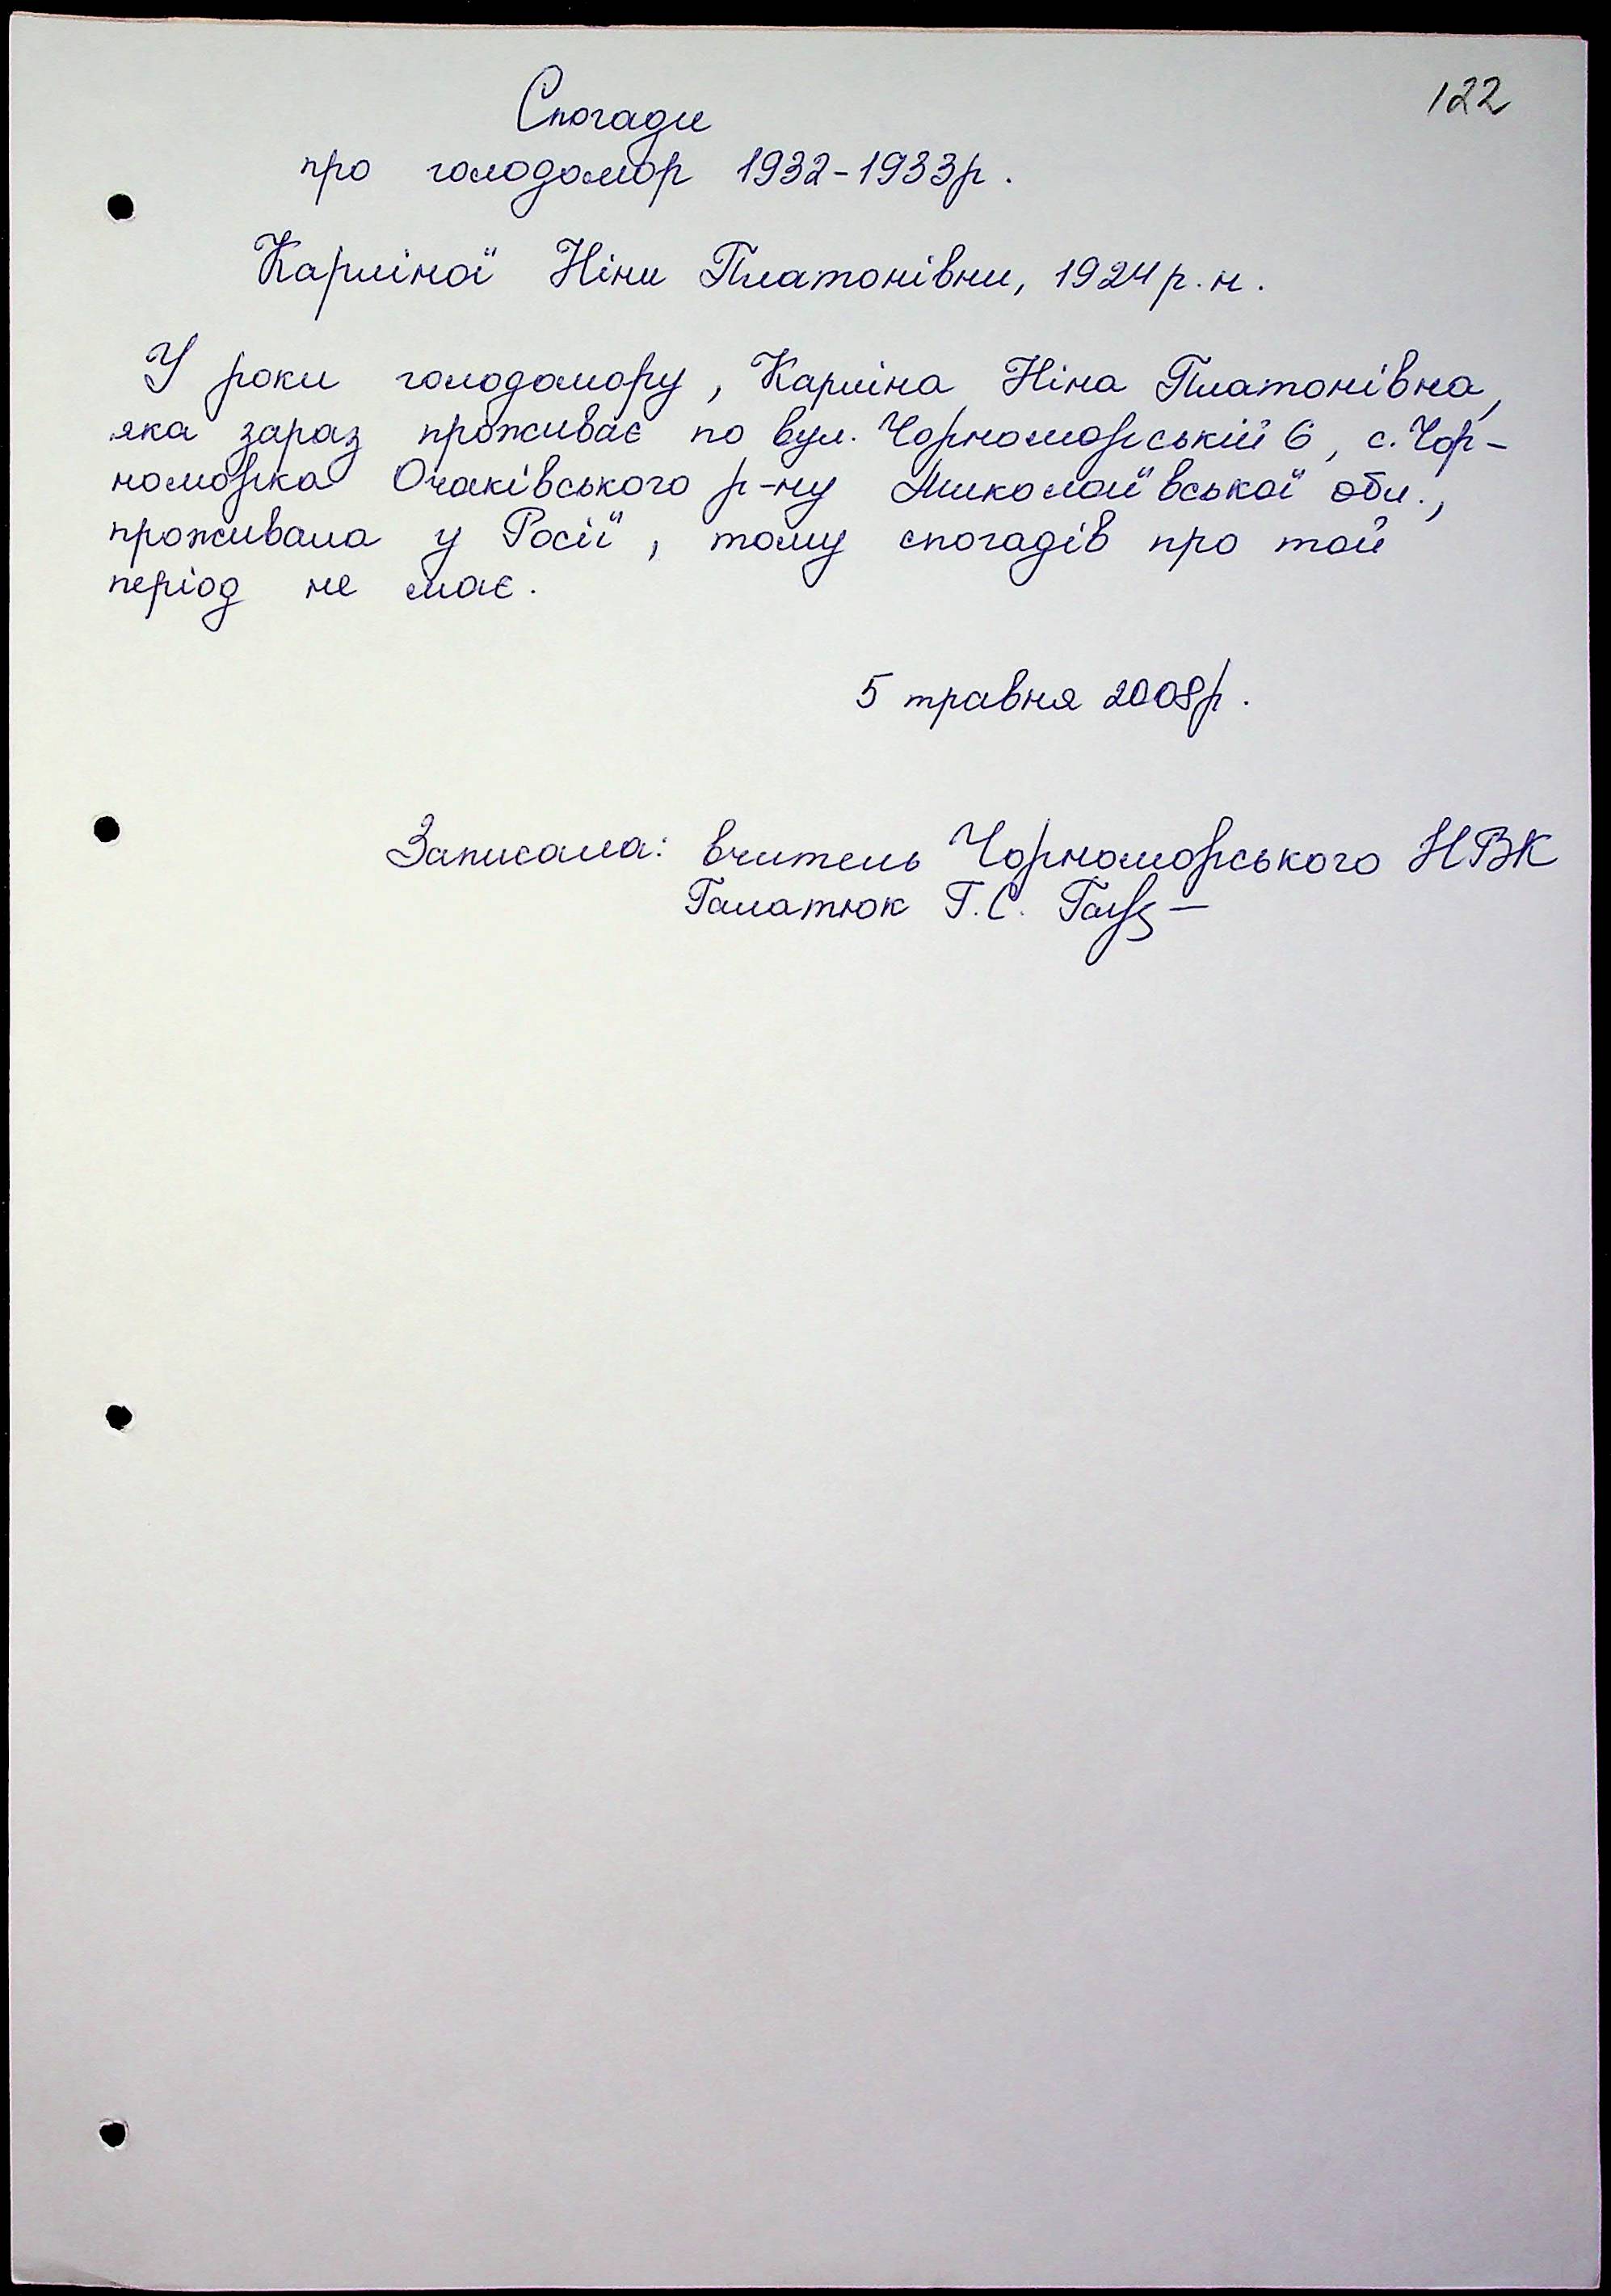 122
Спогади
про голодомор 1932-1933р.
Карліної Ніни Платонівни, 1924 р.н.
У роки голодомору, Карліна Ніна Платонівна,
яка зараз проживає по вул. Чорноморській 6, с. Чор-
номорка Очаківського р-ну Миколаївської обл.,
проживала у Росії, тому спогадів про той
період не має.
5 травня 2008р.
Записала: вчитель Чорноморського НВК
Галатюк Г.С.